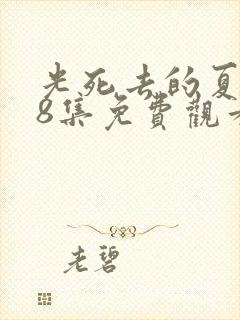 光死去的夏
8集免費觀看
老碧